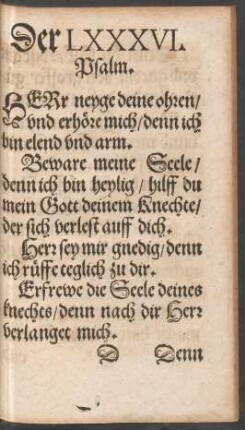 Der LXXXVI.
Psalm.
HERr neyge deine ohren/
vnd erhöre mich/denn ich
bin elend vnd arm.
Beware meine Seele/
denn ich bin heylig/hilff du
mein Gott deinem Knechte/
der sich verlest auff dich.
Herr sey mir gnedig/denn
ich rüffe teglich zu dir.
Erfrewe die Seele deines
knechts/denn nach dir Herr
verlanget mich.
D Denn